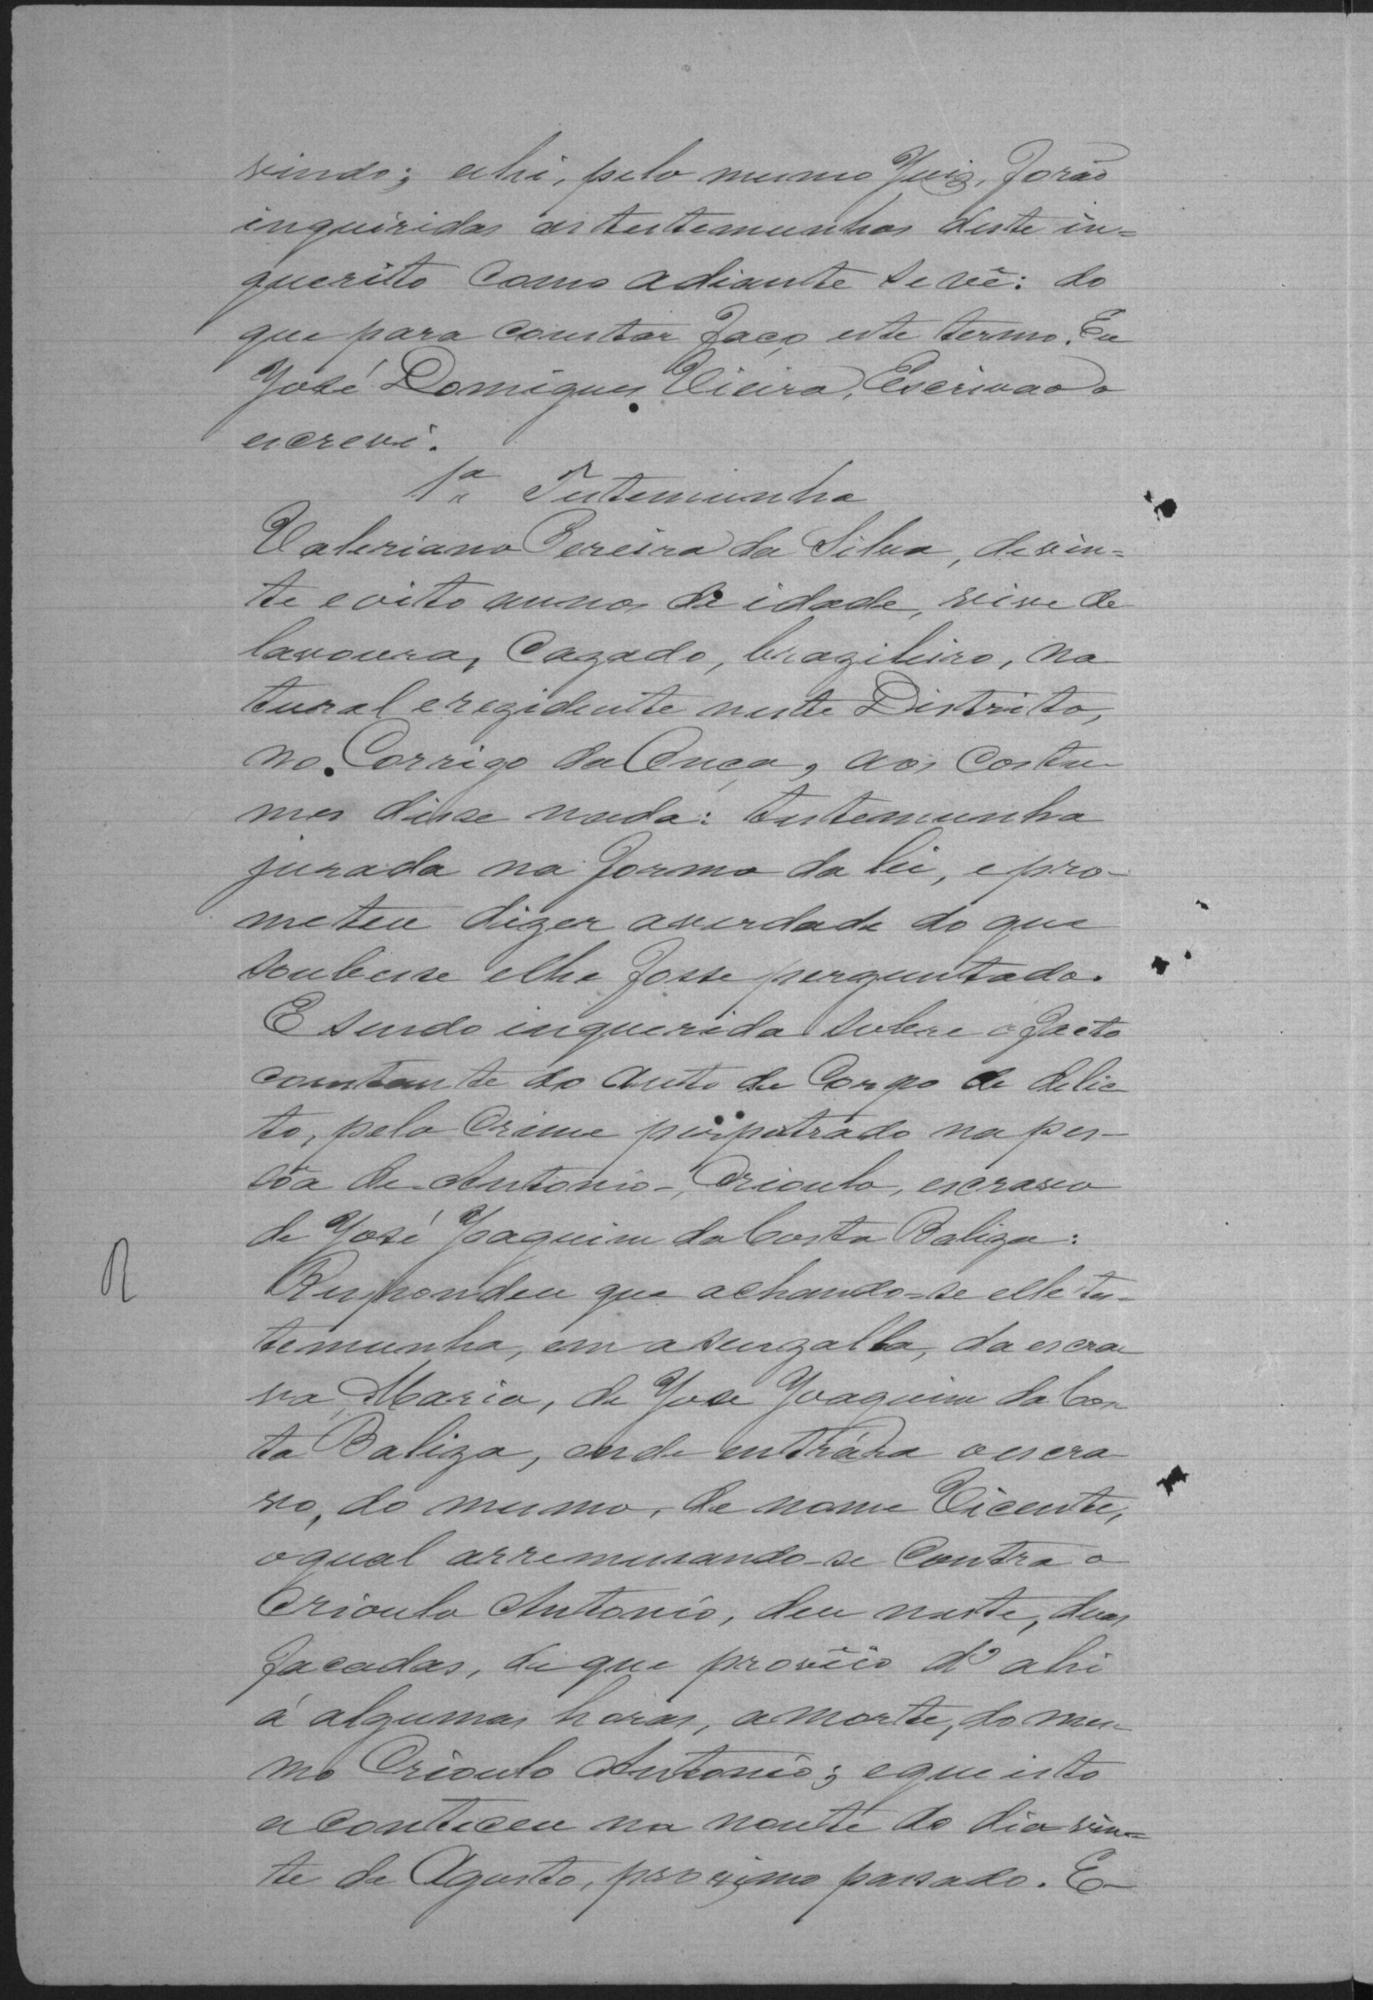 vindo; e ahi, pelo mesmo Juiz, forão
inquiridas as testemunhas deste in=
querito como adiante se vê: do
que para constar faço este termo. Eu
José Domigues Vieira, Escrivão o
escrevi.
1ª Testemunha
Valeriano Pereira da Silva, de vin=
te e oito annos de idade, vive de
lavoura, cazado, brazileiro, na
tural e rezidente neste Districto,
no Corrigo da Onça, aos costu-
mes disse nada: testemunha
jurada na forma da lei, e pro-
meteu dizer a verdade do que
soubesse e lhe fosse perguntado.
E sendo inquerida sobre o facto
constante do auto de Corpo de delic
to, pelo crime perpetrado na pes-
sôa de Antonio-, Crioulo, escravo
de José Joaquim da Costa Baliza:
Respondeu que achando=se elle tes-
temunha, em a senzalla, da escra
va Maria, de Jose Joaquim da Cos
ta Baliza, onde entrára o escra
vo, do mesmo, de nome Vicente,
o qual arremeçando-se contra o
Crioulo Antonio, deu neste, duas
facadas, de que proveio d'ahi
á algumas horas, a morte, do mes-
mo Crioulo Antonio; e que isto
aconteceu na noute do dia vin=
te de Agosto, proximo passado. E-
R